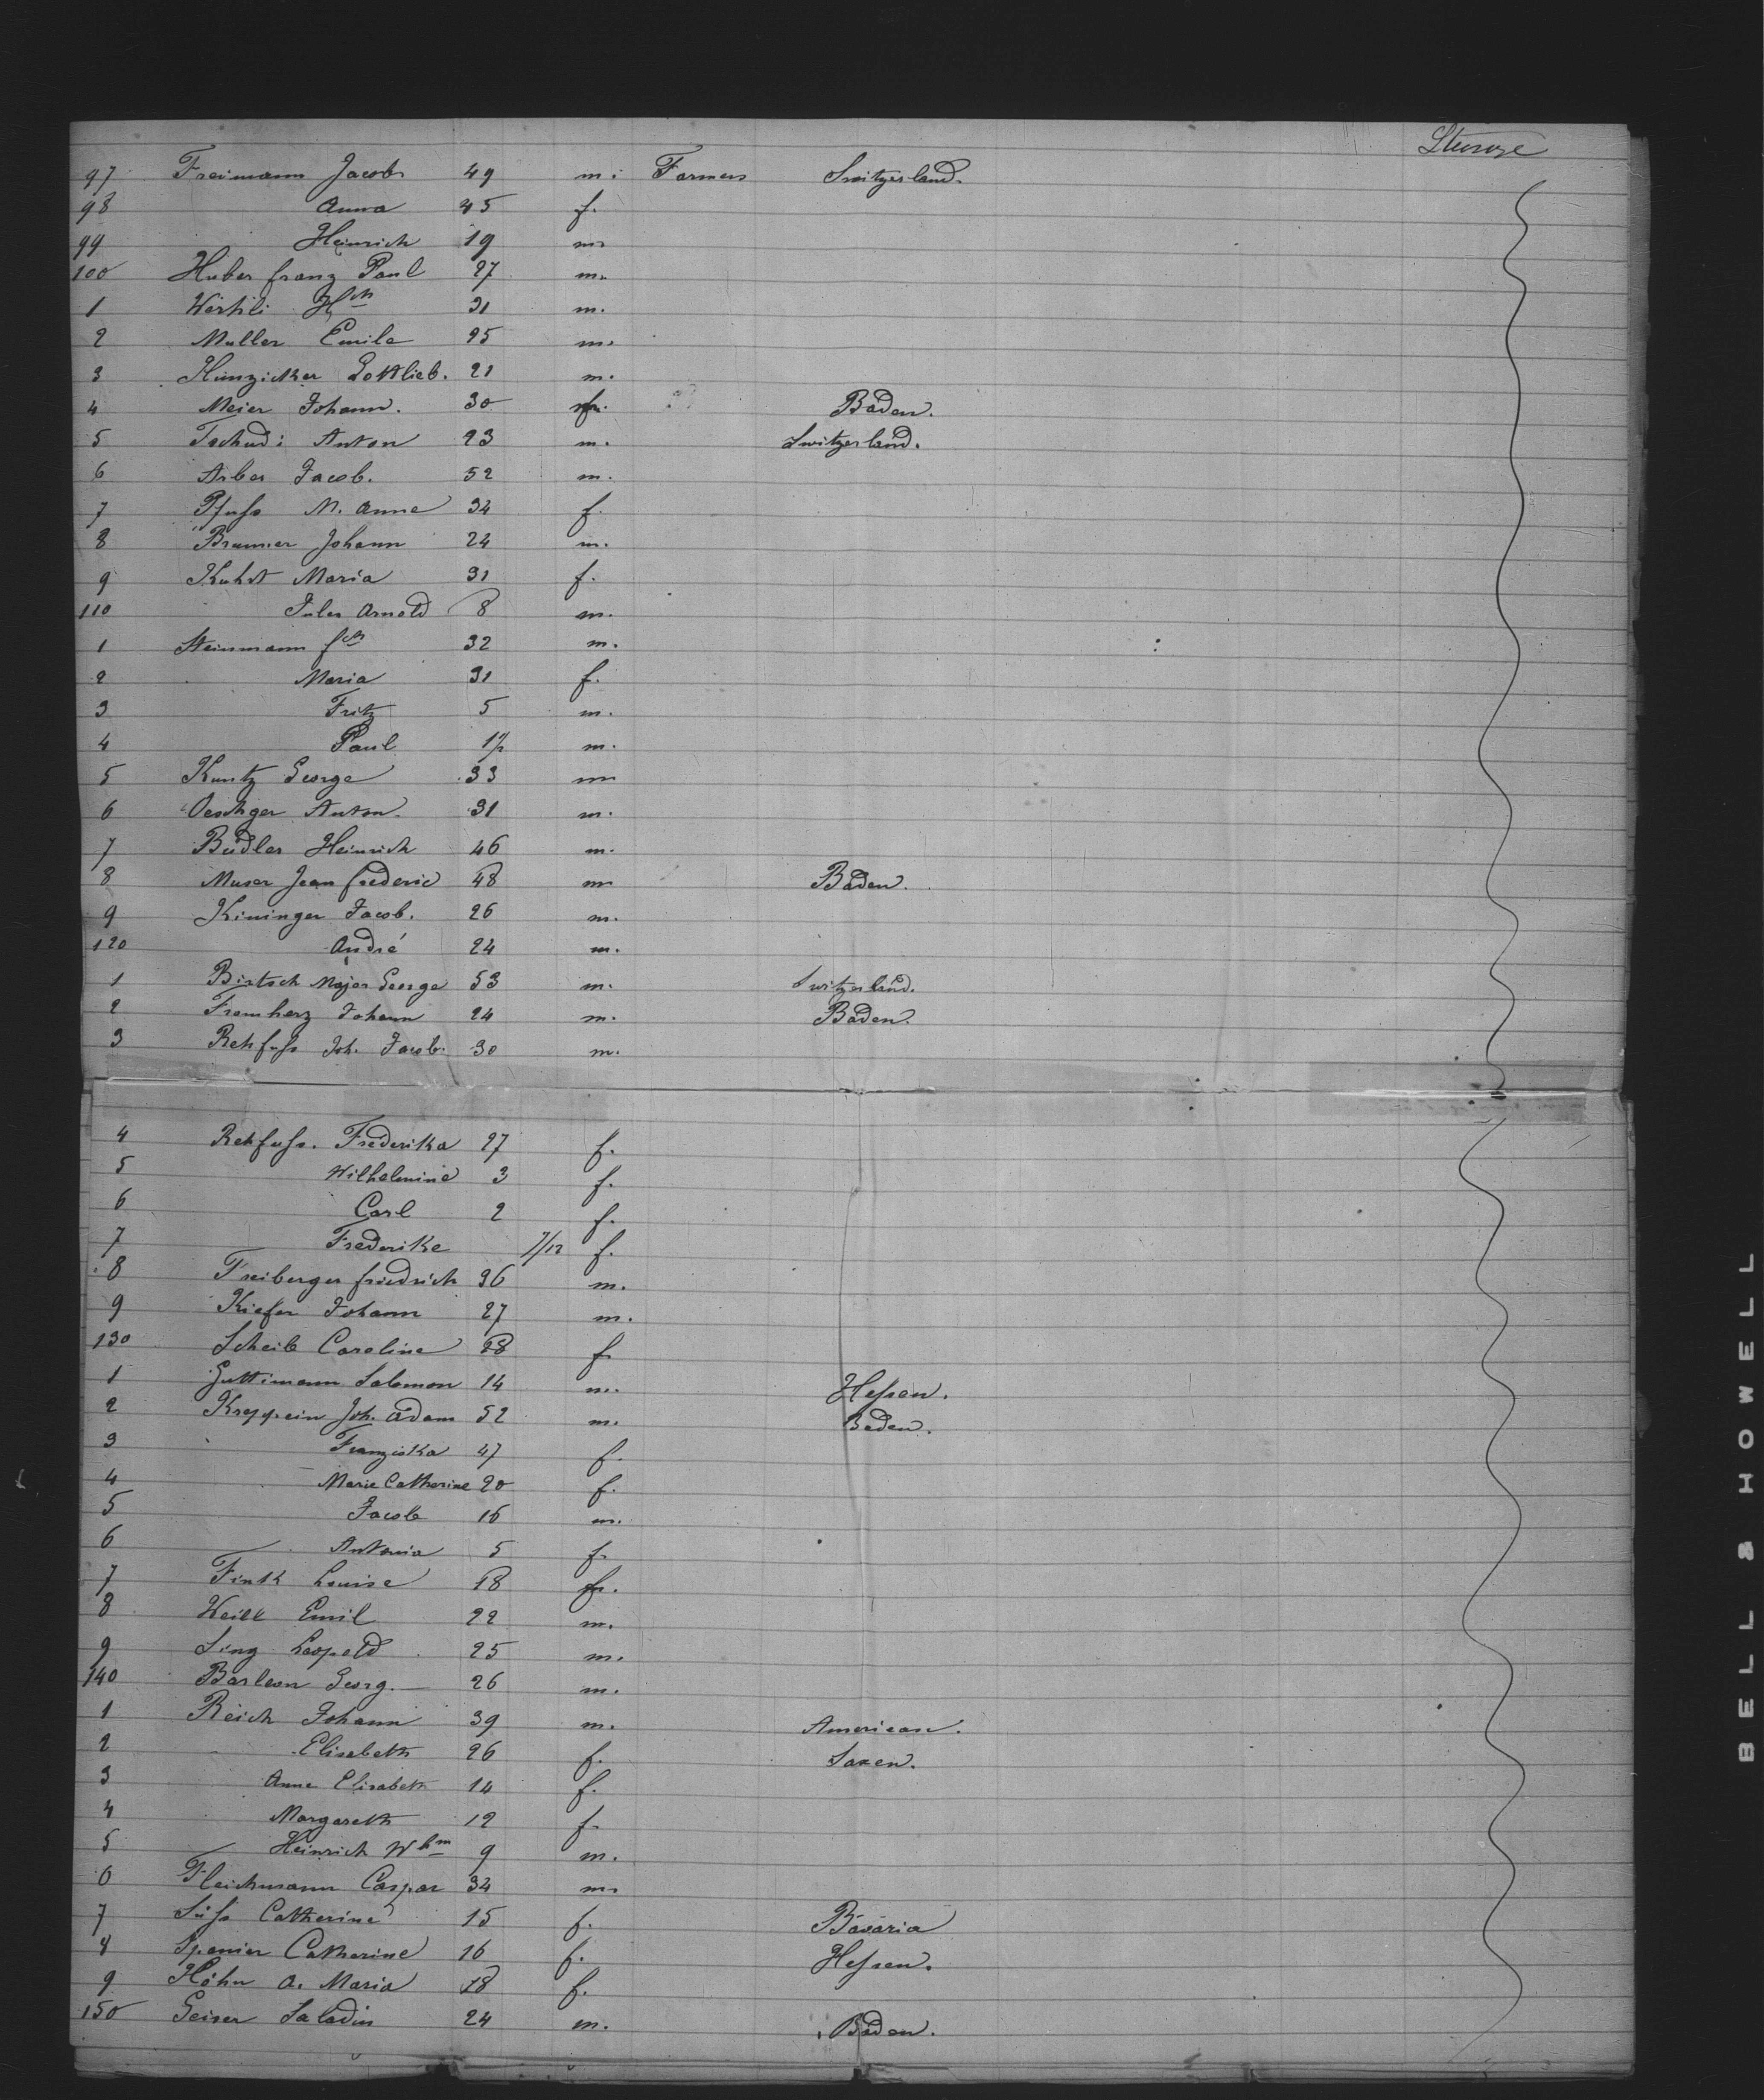 Steerage
97 Freimann Jacob 49 m. Farmers Switzerland.
98 Anna 45 f.
99 Heinrich 19 m.
100 Huber franz Paul 27 m.
1 Wirthli Hch 31 m.
2 Muller Emile 25 m.
3 Hunzicker Gottlieb. 21 m.
4 Meier Johann. 30 m. Baden.
5 Tschudi Anton 23 m. Switzerland.
6 Arber Jacob. 52 m.
7 Pfuss M. Anna 34 f.
8 Brunner Johann 24 m.
9 Kuhst Maria 31 f.
110 Jules Arnold 8 m.
1 Steinmann 32 m.
2 Maria 31 f.
3 Fritz 5 m.
4 Paul m.
5 Kuntz George 33 m
6 Oeschger Anton. 31 m.
7 Budler Heinrich 46 m.
8 Muser Jean frederic 48 m Baden.
9 Kininger Jacob. 26 m.
120 André 24 m.
1 Birtsch Majer George 53 m. Switzerland.
2 Fromherz Johann 24 m. Baden.
3 Rehfuss Joh. Jacob. 30 m.
4 Rehfuss. Frederika 27 f.
5 Wilhelmine 3 f.
6 Carl 2 f.
7 Frederike 7/12 f.
8 Freiberger friedrich 36 m.
9 Kiefer Johann 27 m.
130 Scheib Caroline 28 f
1 Guttimann Salomon 14 m. Hessen.
2 Kreppein Joh. Adam 52 m. Baden.
3 Franziska 47 f.
4 Marie Catherine 20 f.
5 Jacob 16 m.
6 Antonia 5 f.
7 Fink Louise 18 f.
8 Weill Emil 22 m.
9 Sing Leopold 25 m.
140 Barleon Georg. 26 m.
1 Reich Johann 39 m. American.
2 Elisabeth 26 f. Saxen.
3 Anna Elisabeth 14 f.
4 Margareth 12 f.
5 Heinrich Whm 9 m.
6 Fleichmann Caspar 34 m.
7 Süss Catherine 15 f. Bavaria
8 Spanier Catherine 16 f. Hessen.
9 Höhn A. Maria 18 f.
150 Geiser Saladin 24 m. Baden.
BELL & HOWELL